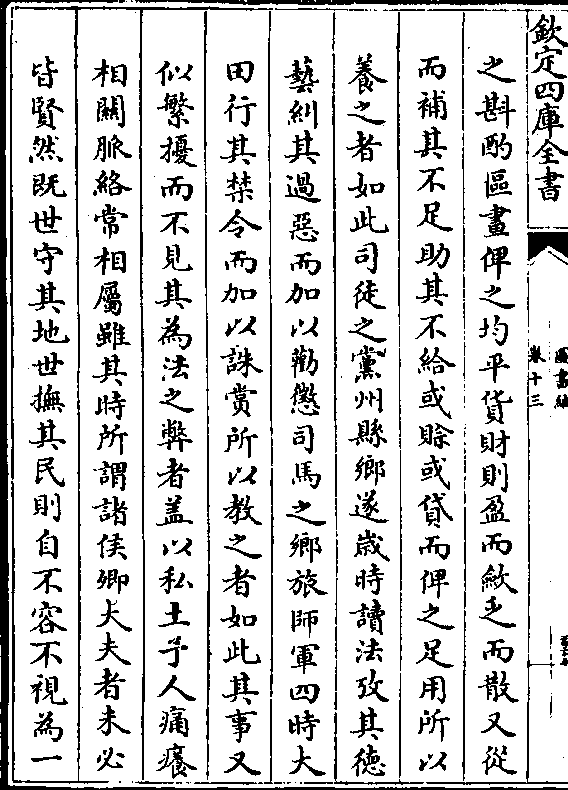 欽定四庫全書
圖書編
卷十三
之斟酌區畫俾之均平貨財則盈而歛乏而散又從
而補其不足助其不給或賒或貸而俾之足用所以
養之者如此司徒之黨州縣鄉遂歲時讀法攷其德
藝糾其過惡而加以勸懲司馬之鄉旅師軍四時大
田行其禁令而加以誅賞所以教之者如此其事又
似繁擾而不見其為法之弊者盖以私土予人痛癢
相關脈絡常相屬雖其時所謂諸侯卿大夫者未必
皆賢然既世守其地世撫其民則自不容不視為一